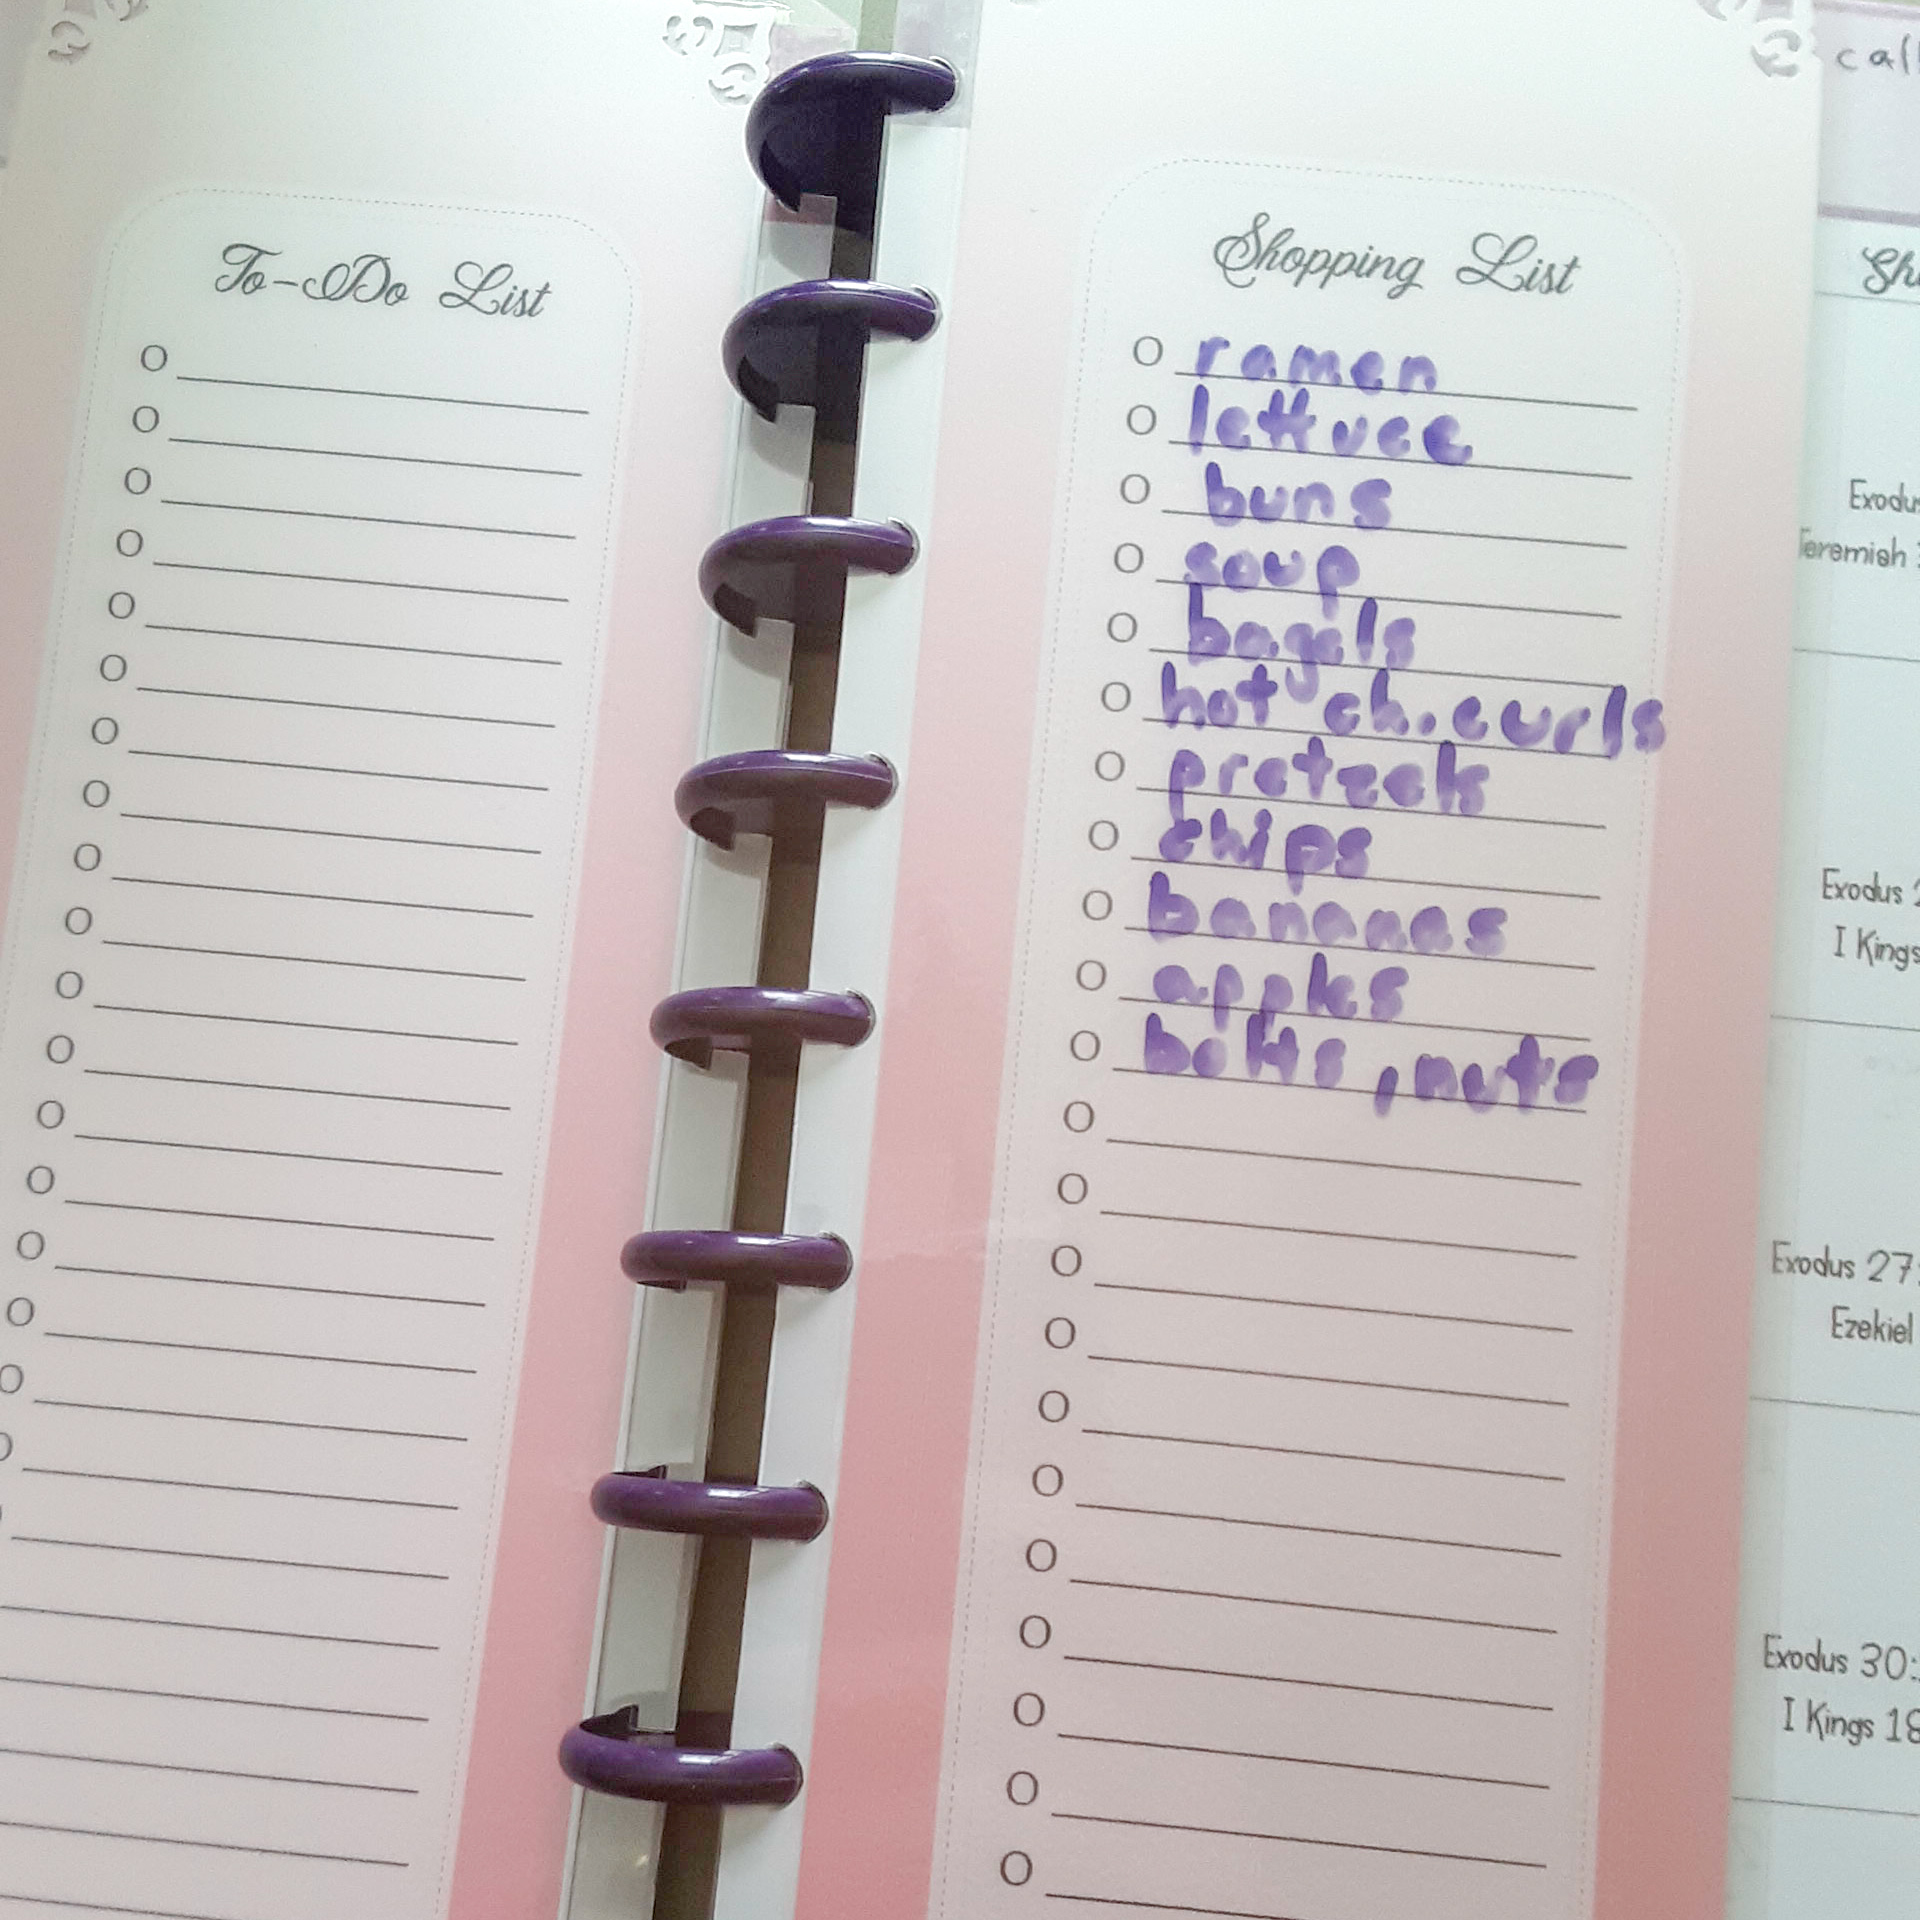 To-Do List
Shopping List
ramen
lettuce
buns
soup
bagels
hot ch. curls
pretzels
chips
bananas
apples
bolts, nuts
call
Exodus
Jeremiah
Exodus
I Kings
Exodus 27:
Ezekiel
Exodus 30:
I Kings 18